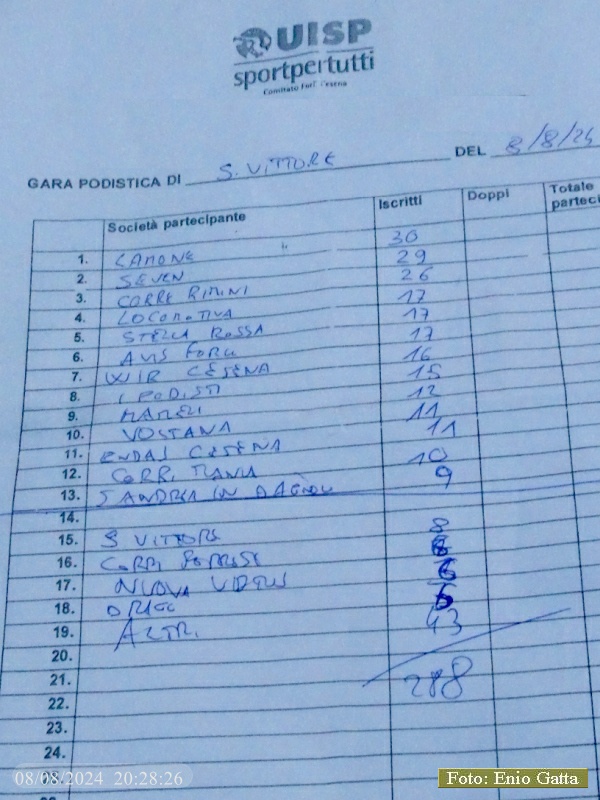 UISP
sportpertutti
Comitato Forlì Cesena
GARA PODISTICA DI S. VITTORE DEL 8/8/24
Società partecipante Iscritti Doppi Totale parteci
1. CAMONE 30
2. SEVEN 29
3. CORRE RIMINI 26
4. LOCOMOTIVA 17
5. STELLA ROSSA 17
6. AVIS FORLI 17
7. WIR CESENA 16
8. I PODISTI 15
9. MAMELI 12
10. VOLTANA 11
11. ENDAS CESENA 11
12. CORRI 10
13. S ANDREA IN BAGNOLO 9
14.
15. S VITTORE 8
16. CORRI
17. NUOVA VIRTUS 6
18.
19. ALTRI 43
20.
21. 288
22.
23.
24.
08/08/2024 20:28:26
Foto: Enio Gatta